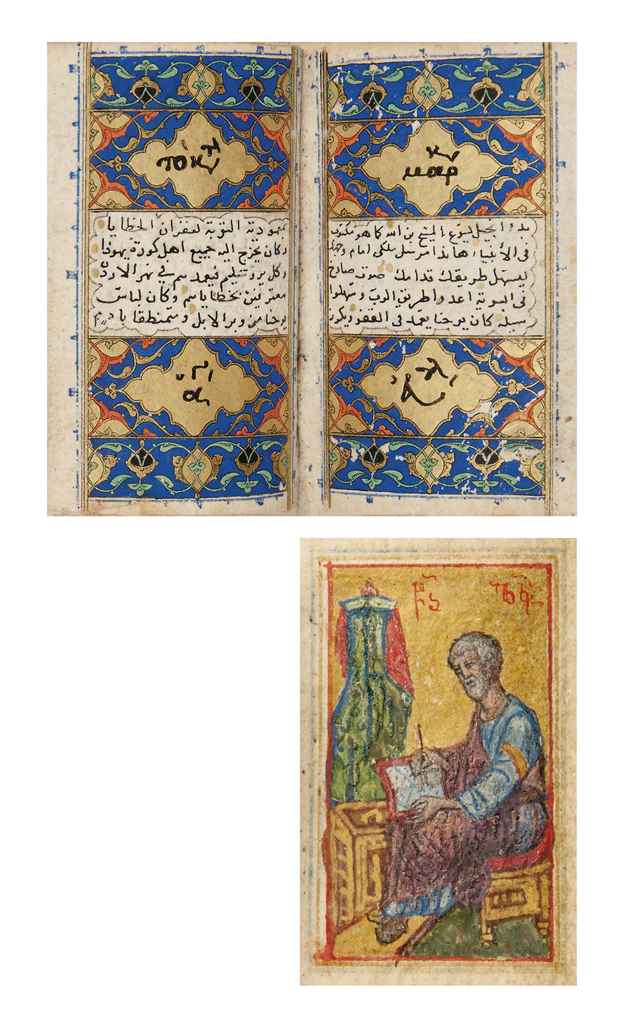 μαρκ
بدو انجيل يسوع المسيح بن الله كما هو مكتوب
في الأنبياء هاذا مرسل ملكي امام وجهك
يسهل طريقك قدامك صوت صارخ
في البرية اعدوا طريق الرب وسهلوا
سبله كان يوحنا يعمد في القفر ويكرز
بمعمودية التوبة لغفران الخطايا
وكان يخرج اليه جميع اهل كورة يهودا
وكل يروشليم فيعمدهم في نهر الاردن
معترفين بخطاياهم وكان لباس
يوحنا من وبر الابل ومتمنطقا با